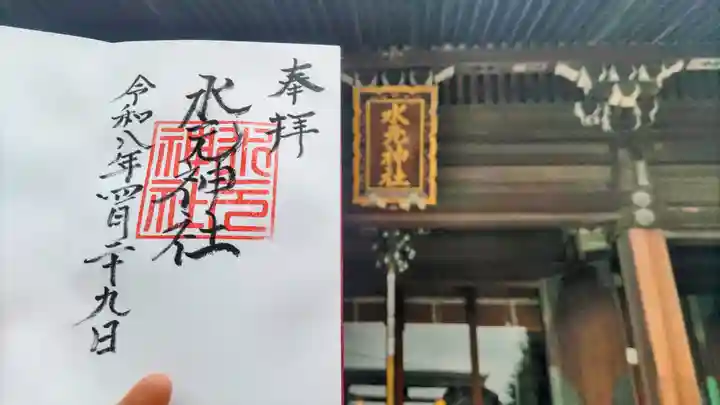 奉拝
水元神社
水元神社
令和八年四月二十九日
水元神社